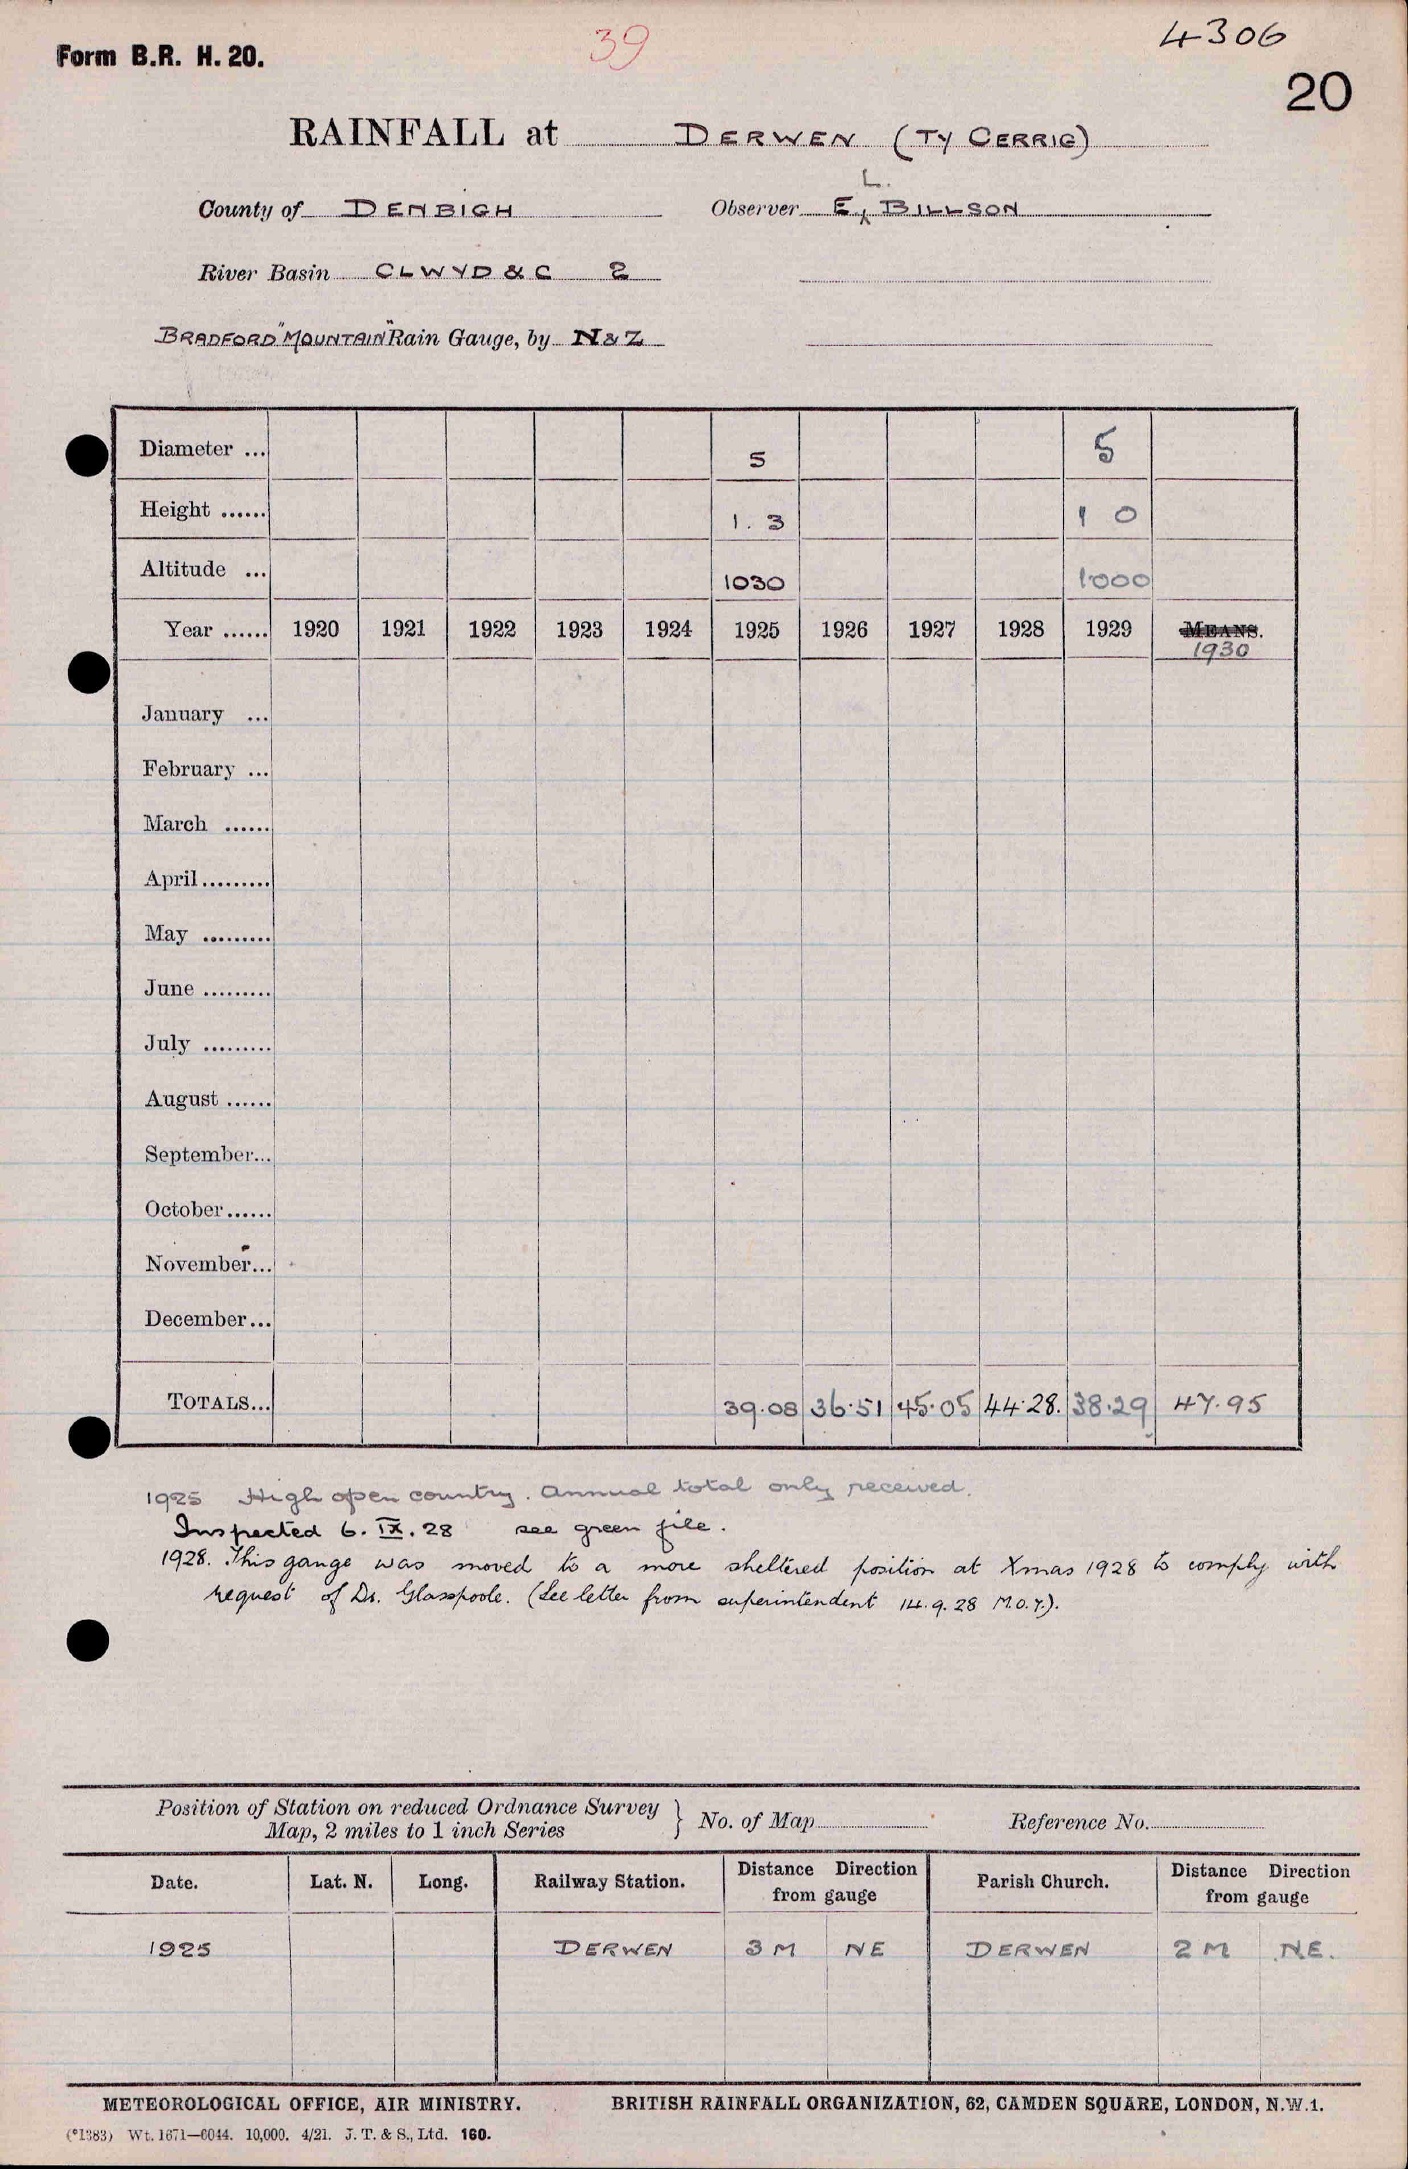 Form B.R. H. 20.
39
4306
20
RAINFALL at DERWEN (TY CERRIG)
County of DENBIGH Observer E. L. BILLSON
River Basin CLWYD & C 2
BRADFORD "MOUNTAIN" Rain Gauge, by N & Z
Diameter ... 5 5
Height ...... 1. 3 1 0
Altitude ... 1030 1000
Year ...... 1920 1921 1922 1923 1924 1925 1926 1927 1928 1929 MEANS.
1930
January ...
February ...
March ......
April.........
May .........
June .........
July .........
August ......
September...
October......
November...
December...
TOTALS... 39.08 36.51 45.05 44.28. 38.29 47.95
1925 High open country. Annual total only received.
Inspected 6. IX. 28 see green file.
1928. This gauge was moved to a more sheltered position at Xmas 1928 to comply with
request of Dr. Glasspoole. (See letter from superintendent 14.9.28 M.O.7.).
Position of Station on reduced Ordnance Survey
Map, 2 miles to 1 inch Series } No. of Map Reference No.
Date. Lat. N. Long. Railway Station. Distance Direction from gauge Parish Church. Distance Direction from gauge
1925 DERWEN 3 M NE DERWEN 2 M N.E.
METEOROLOGICAL OFFICE, AIR MINISTRY. BRITISH RAINFALL ORGANIZATION, 62, CAMDEN SQUARE, LONDON, N.W.1.
(*1383) Wt. 1671—6044. 10,000. 4/21. J. T. & S., Ltd. 160.